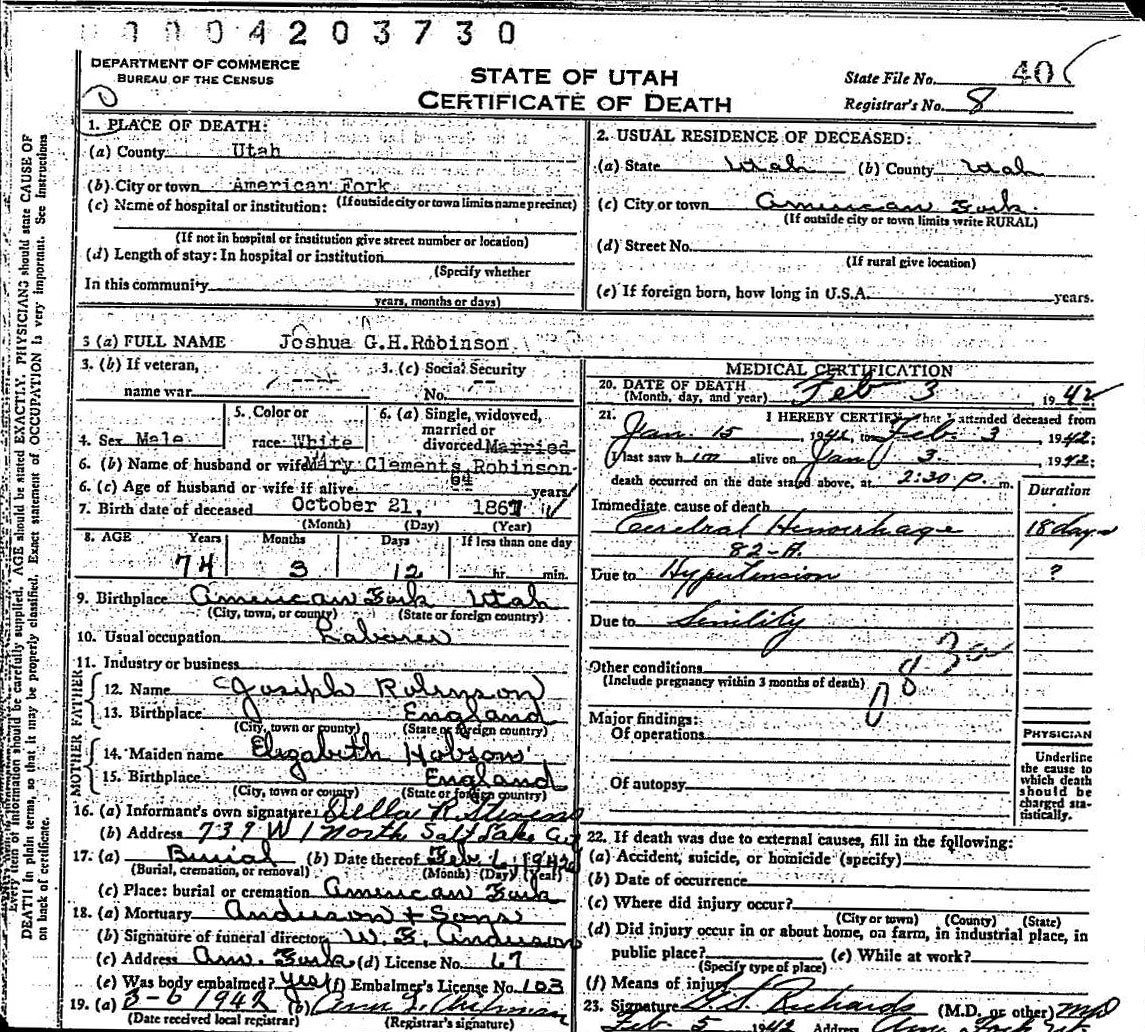 0004203730
DEPARTMENT OF COMMERCE
BUREAU OF THE CENSUS
STATE OF UTAH
CERTIFICATE OF DEATH
State File No. 40
Registrar's No. 8
1. PLACE OF DEATH:
(a) County Utah
(b) City or town American Fork
(If outside city or town limits name precinct)
(c) Name of hospital or institution:
(If not in hospital or institution give street number or location)
(d) Length of stay: In hospital or institution
(Specify whether
In this community
years, months or days)
2. USUAL RESIDENCE OF DECEASED:
(a) State Utah (b) County Utah
(c) City or town American Fork.
(If outside city or town limits write RURAL)
(d) Street No.
(If rural give location)
(e) If foreign born, how long in U.S.A. years.
3 (a) FULL NAME Joshua G.H.Robinson
3. (b) If veteran,
name war
3. (c) Social Security
No.
4. Sex Male
5. Color or
race White
6. (a) Single, widowed,
married or
divorced Married
6. (b) Name of husband or wife Mary Clements Robinson
6. (c) Age of husband or wife if alive 64 years
7. Birth date of deceased October 21, 1867
(Month) (Day) (Year)
8. AGE Years Months Days If less than one day
74 3 12 hr. min.
9. Birthplace American Fork Utah
(City, town, or county) (State or foreign country)
10. Usual occupation Laborer
11. Industry or business
FATHER
12. Name Joseph Robinson
13. Birthplace England
(City, town or county) (State or foreign country)
MOTHER
14. Maiden name Elizabeth Hobson
15. Birthplace England
(City, town or county) (State or foreign country)
16. (a) Informant's own signature Della R. Stevens
(b) Address 739 W 1 North Salt Lake City
17. (a) Burial (b) Date thereof Feb 6 1942
(Burial, cremation, or removal) (Month) (Day) (Year)
(c) Place: burial or cremation American Fork
18. (a) Mortuary Anderson + Sons
(b) Signature of funeral director W. E. Anderson
(c) Address Am. Fork (d) License No. 67
(e) Was body embalmed? Yes (f) Embalmer's License No. 103
19. (a) 3-6 1942 (b) Chipman
(Date received local registrar) (Registrar's signature)
MEDICAL CERTIFICATION
20. DATE OF DEATH Feb 3, 1942
(Month, day, and year)
21. I HEREBY CERTIFY that I attended deceased from
Jan. 15, 1942, to Feb. 3, 1942;
I last saw him alive on Jan 3. 1942;
death occurred on the date stated above, at 2:30 P. m.
Duration
Immediate cause of death
Cerebral Hemorrhage 18 days
82-A.
Due to Hypertension ?
Due to Senility
Other conditions
(Include pregnancy within 3 months of death)
Major findings:
Of operations
Of autopsy
PHYSICIAN
Underline
the cause to
which death
should be
charged sta-
tistically.
22. If death was due to external causes, fill in the following:
(a) Accident, suicide, or homicide (specify)
(b) Date of occurrence
(c) Where did injury occur?
(City or town) (County) (State)
(d) Did injury occur in or about home, on farm, in industrial place, in
public place? (e) While at work?
(Specify type of place)
(f) Means of injury
23. Signature Richards (M.D. or other) MD
Feb 5 1942 Address Am. Fork Ut.
Every item of information should be carefully supplied. AGE should be stated EXACTLY. PHYSICIANS should state CAUSE OF
DEATH in plain terms, so that it may be properly classified. Exact statement of OCCUPATION is very important. See instructions
on back of certificate.